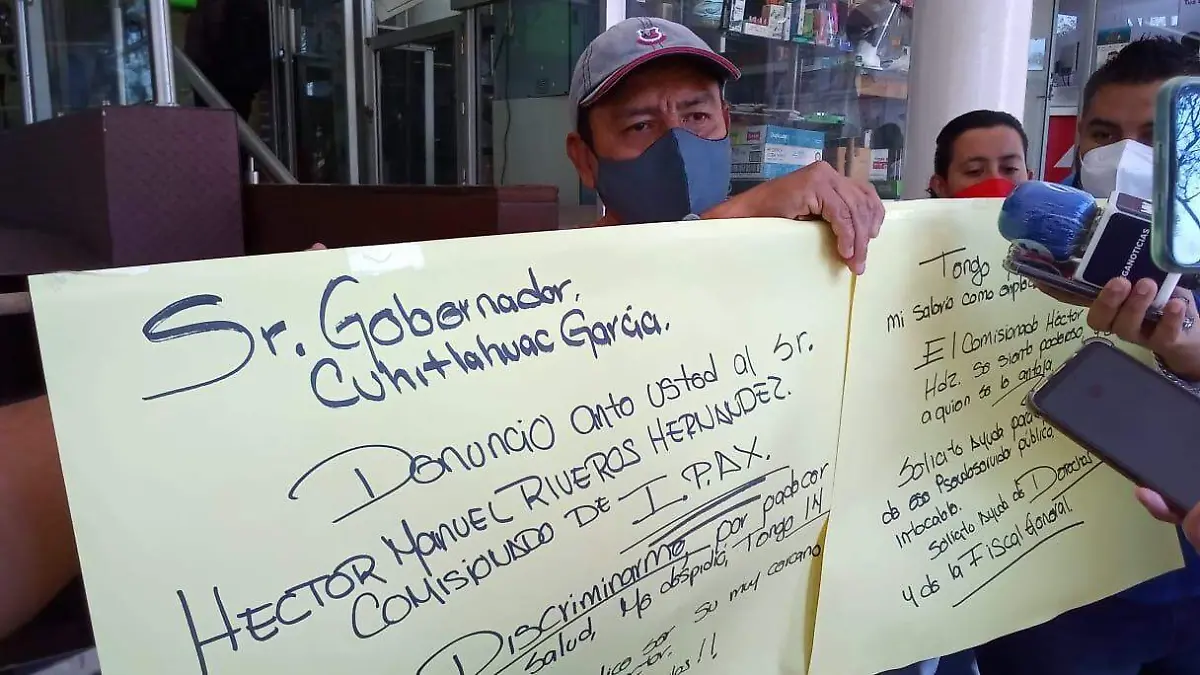 Sr. Gobernador.
Cuhitlahuac García.
Denuncio ante usted al Sr.
HECTOR MANUEL RIVEROS HERNANDEZ.
COMISIONADO DE I.P.A.X.
DISCRIMINARME, por padecer
Salud, Me despidió, Tengo IN
Su muy cercano
Tengo
mi salario como
El Comisionado Héctor
Hdz. Se siente poderoso,
a quien se le antoja
Solicito Ayuda para
de ese Pseudoservidor público,
intocable.
Solicito Ayuda de Derechos
y de la Fiscal General.
GANOTICIAS